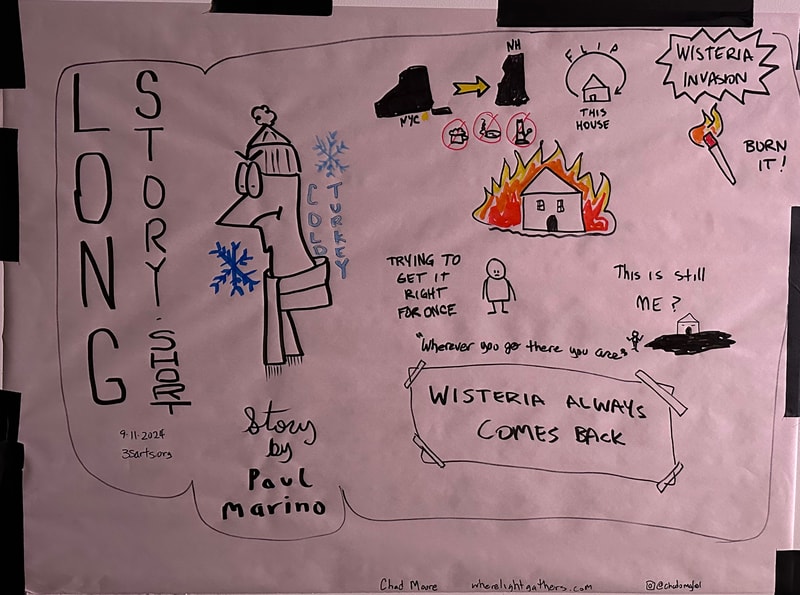 LONG
STORY.SHORT
9-11-2024
3Sarts.org
COLD
TURKEY
Story
by
Paul
Marino
NYC
NH
FLIP
THIS
HOUSE
WISTERIA
INVASION
BURN
IT!
TRYING TO
GET IT
RIGHT
FOR ONCE
This is still
ME?
"Wherever you go there you are"
WISTERIA ALWAYS
COMES BACK
Chad Moore
wherelightgathers.com